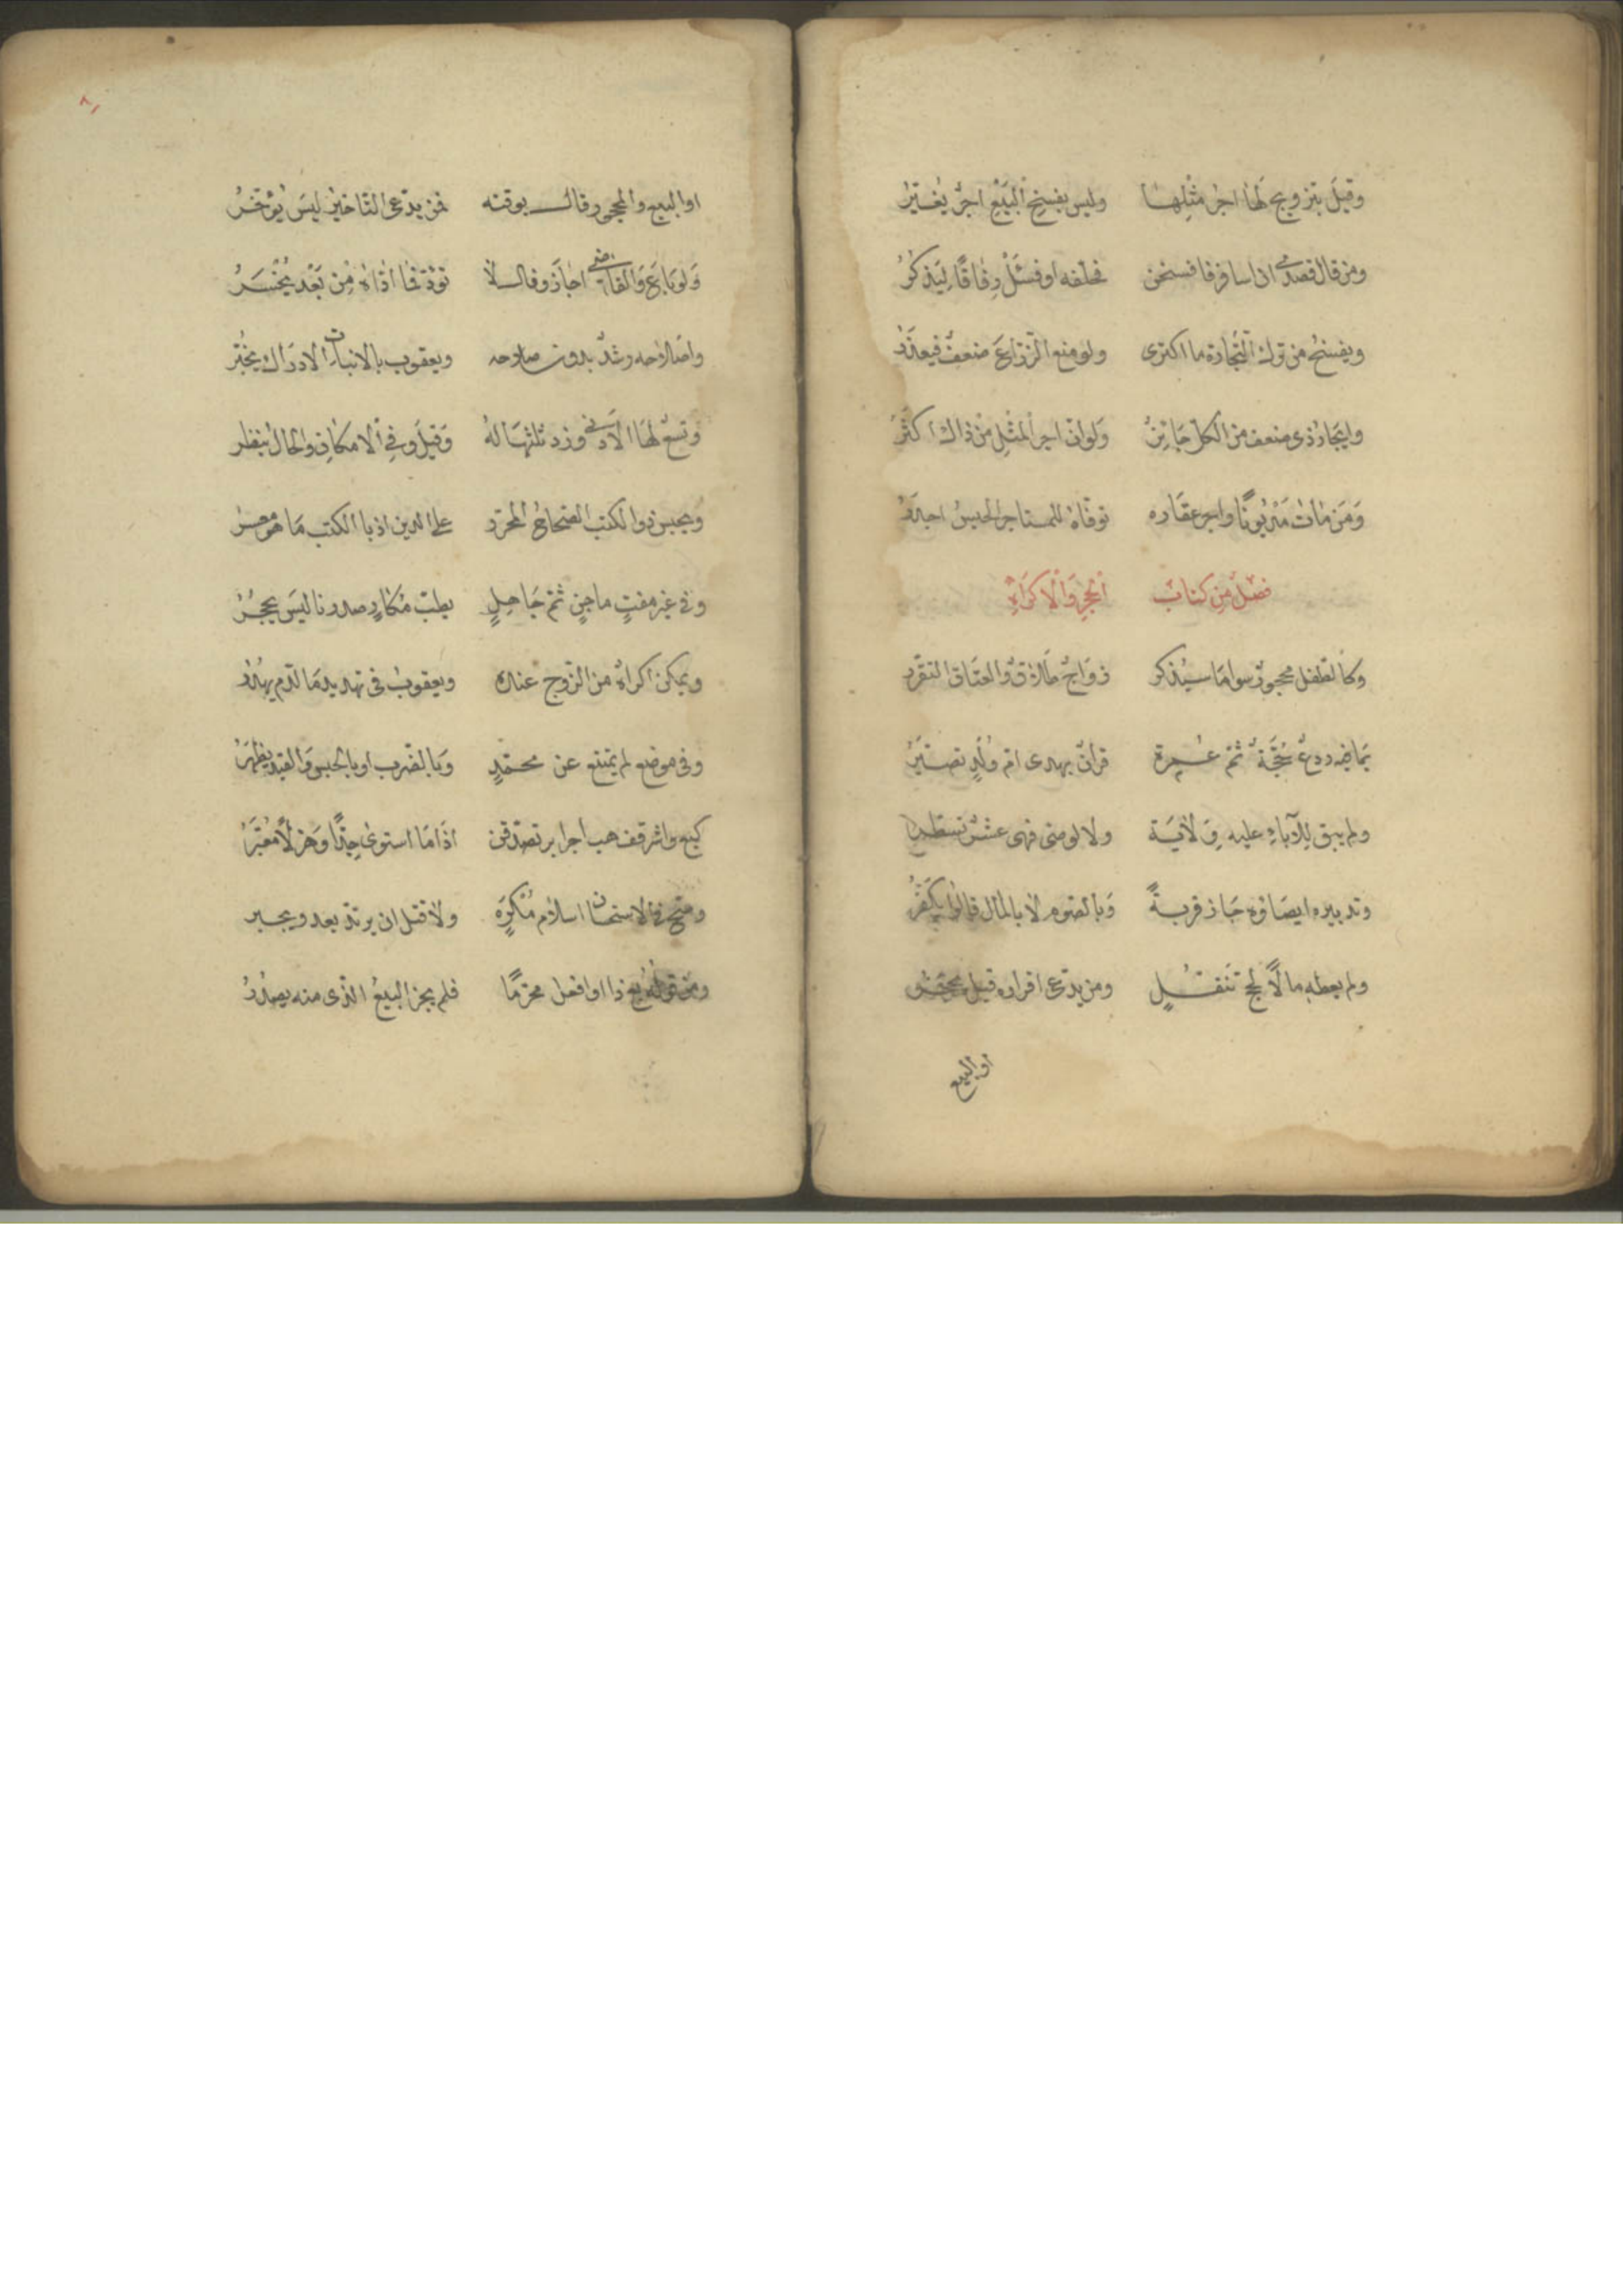 وقيل بتزويج لها اجر مثلها وليس بفسخ البيع اجر يغير
ومن قال قصدى ان اسافر فافسخن فحلفه او فسئل رفاقا ليذكر
ويفسخ من ترك التجارة ما اكترى ولو منع الزراع ضعف فيعذر
وايجار ذى ضعف من الكل جائز ولو ان اجر المثل من ذاك اكثر
ومن مات مديونا واجر عقاره توفاه للمستاجر الحبس اجدر
فصل من كتاب الحجر والاكراه
وكالطفل محجور سوا ما سيذكر زواج طلاق والعتاق التقرر
ودع حجة ثم عمرة قران بهدى ام ولد تصير
ولم يبق للآباء عليه ولاية ولا لوصى فهى عشر تسطر
وتدبيره ايصاؤه جاز قربة وبالصوم لا بالمال قالوا يكفر
ولم يعطه مالا لحج تنفل ومن يدعى اقراره قبل يحجر
او البيع
٨١
او البيع والمحجور قال بوقته فمن يدعى التاخير ليس يؤخر
ولو باع والقاضى اجاز وقال لا تؤد فما اداه من بعد يخسر
واصلاحه رشد بدون صلاحه ويعقوب بالانبات الادراك يخبر
وتسع لها الادنى وزد ثلثها له وقيل وفى الامكان والحال ينظر
ويحبس ذو الكتب الصحاح المحرر على الدين اذ بالكتب ما هو معسر
وفى غير مفت ماجن ثم جاهل بطب مكار صدرنا ليس يحجر
ويمكن اكراه من الزوج عندك ويعقوب فى تهديد ما الدم يهدر
وفى موضع لم يمتنع عن محمد وبالضرب او بالحبس والقيد يظهر
كبع واشتر قف هب اجر ابر تصدقن اذا ما استوى جدا وهزلا معبر
وصح فى الاستحسان اسلام مكره ولا قتل ان يرتد بعد ويجبر
ومن قوله بع ذا او افعل محرما فلم يجز البيع الذى منه يصدر